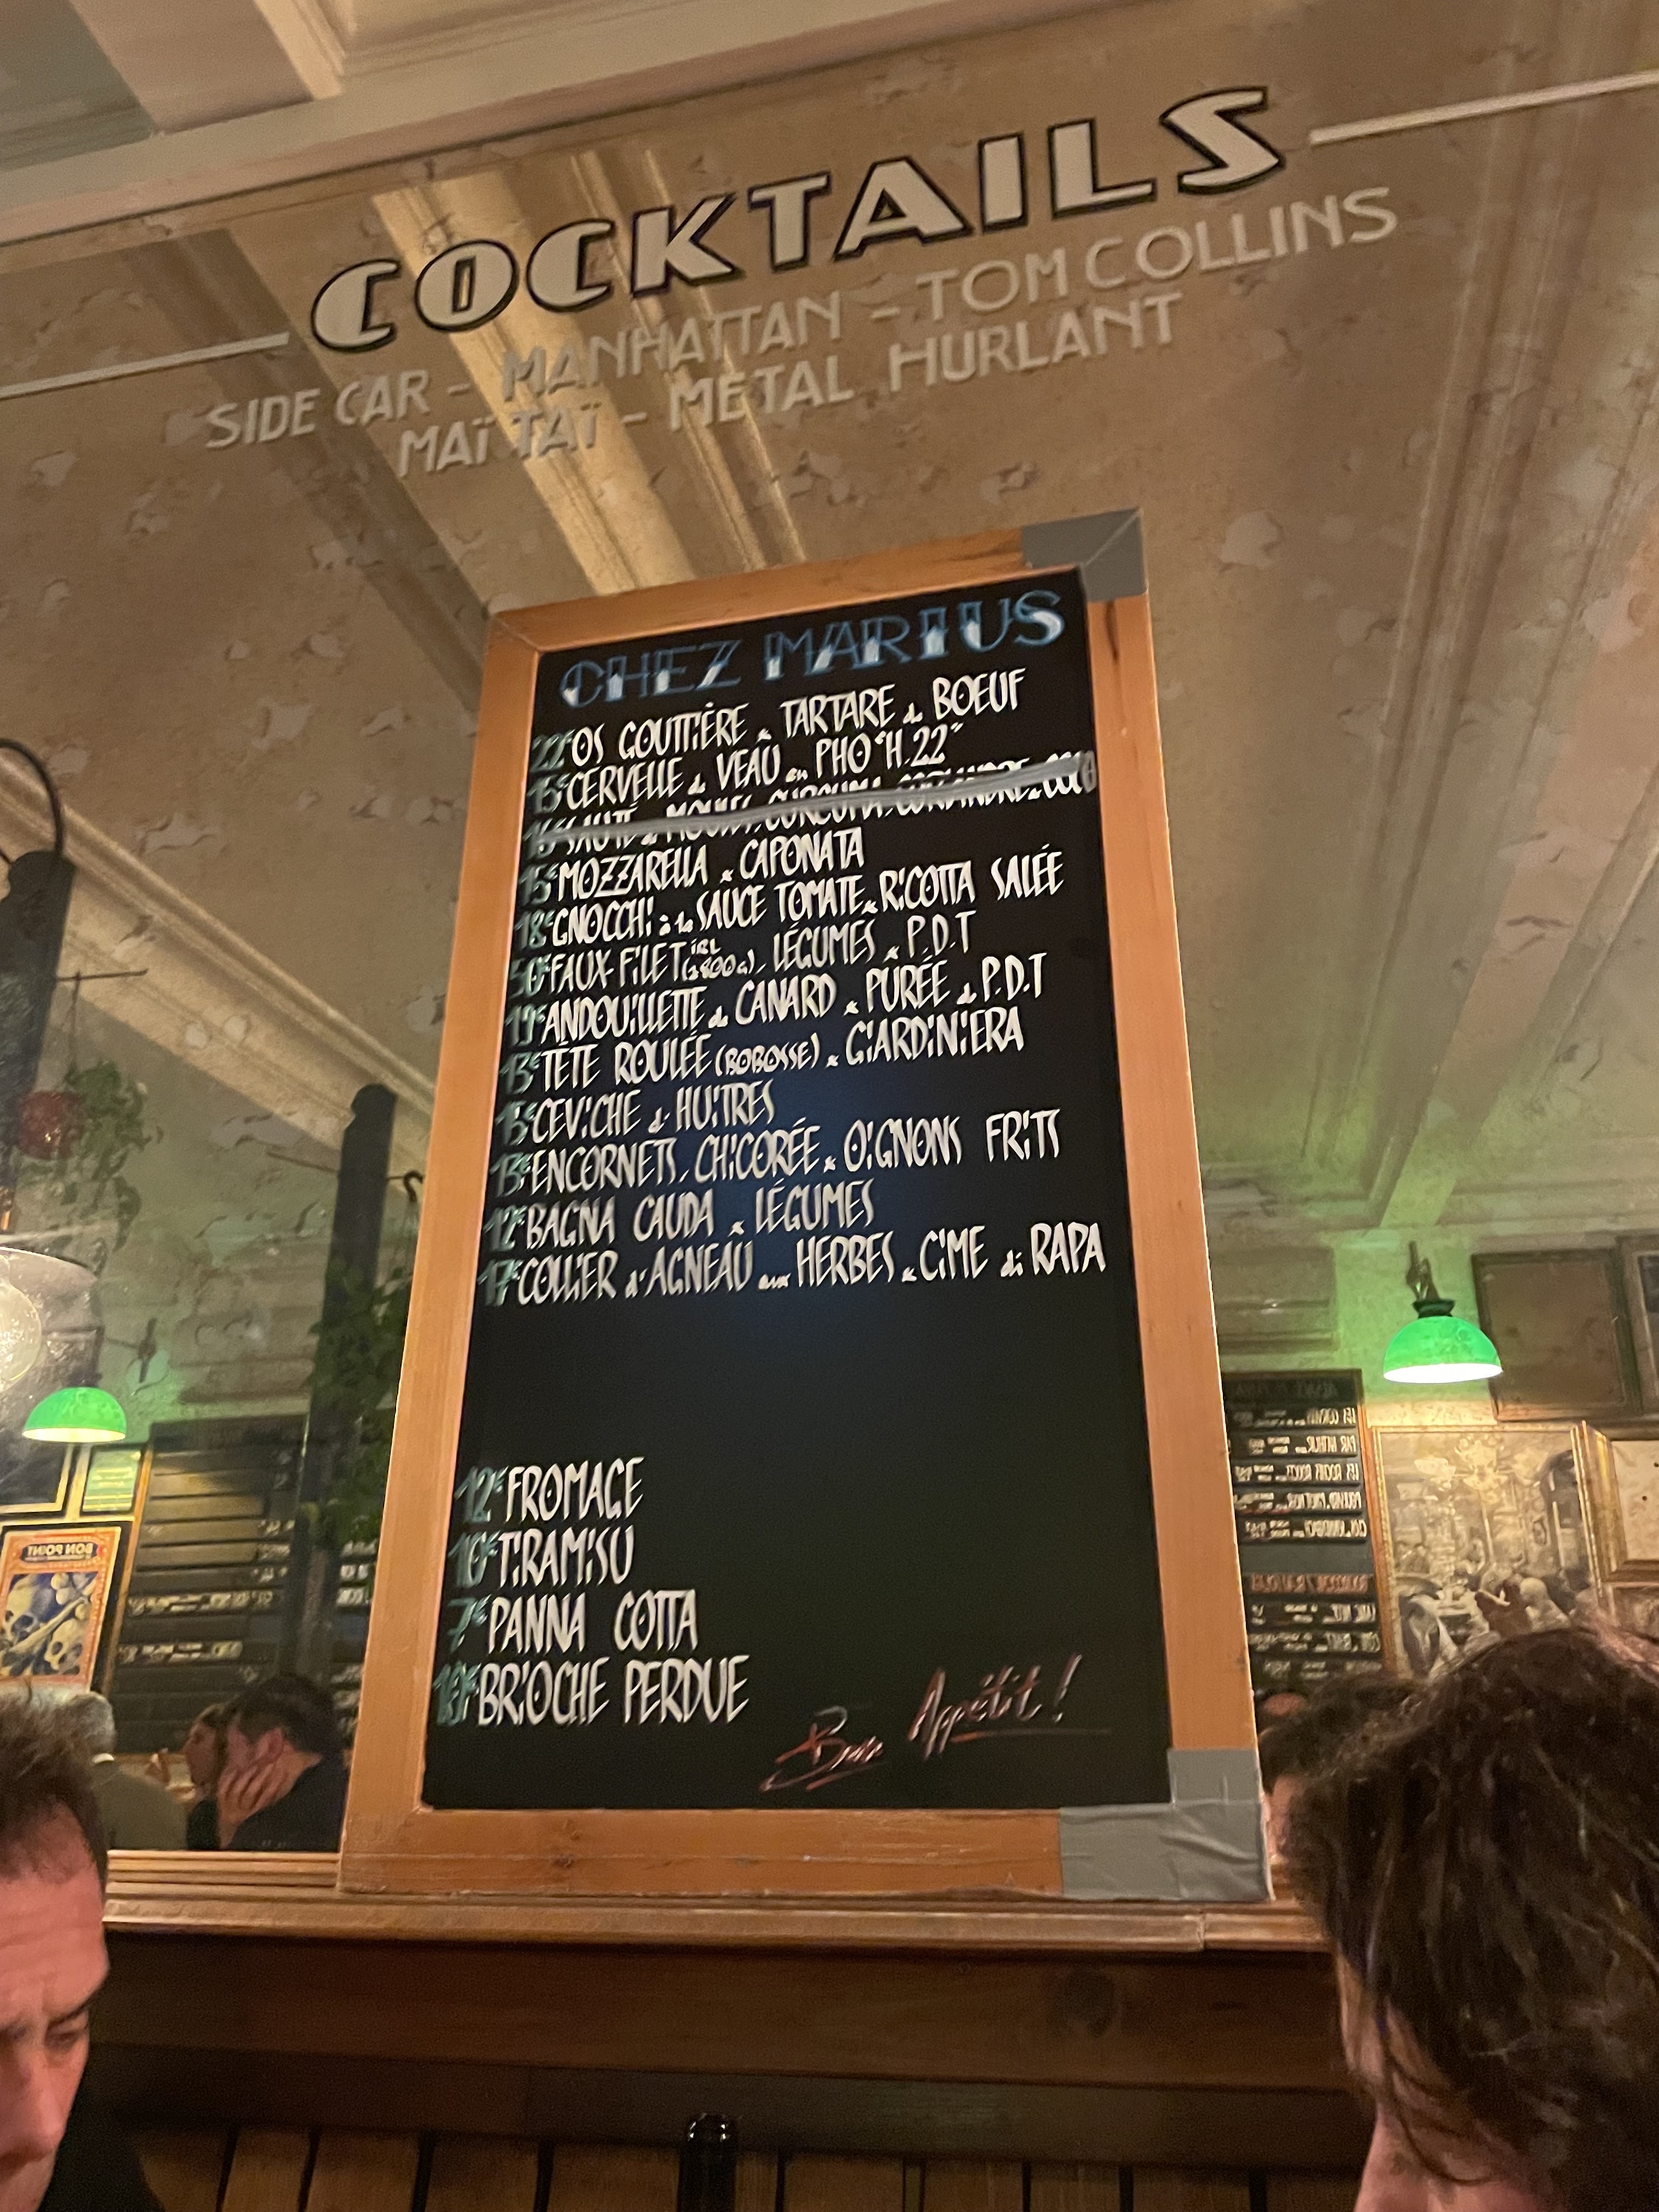 COCKTAILS
SIDE CAR - MANHATTAN - TOM COLLINS
MAÏ TAÏ - METAL HURLANT
CHEZ MARIUS
22€ OS GOUTTIÈRE & TARTARE de BOEUF
15€ CERVELLE de VEAU en PHO "H.22"
16€ SAUTÉ de MOULES, CURCUMA, CORIANDRE & COCO
15€ MOZZARELLA & CAPONATA
18€ GNOCCHI à la SAUCE TOMATE & RICOTTA SALÉE
FAUX-FILET IRL, LÉGUMES & P.D.T
19€ ANDOUILLETTE de CANARD & PURÉE de P.D.T
13€ TÊTE ROULÉE (BOBOSSE) & GIARDINIERA
15€ CEVICHE d'HUITRES
13€ ENCORNETS, CHICORÉE & OIGNONS FRITS
12€ BAGNA CAUDA & LÉGUMES
17€ COLLIER d'AGNEAU aux HERBES & CIME di RAPA
12€ FROMAGE
10€ TIRAMISU
7€ PANNA COTTA
BRIOCHE PERDUE
Bon Appétit !
BON POINT